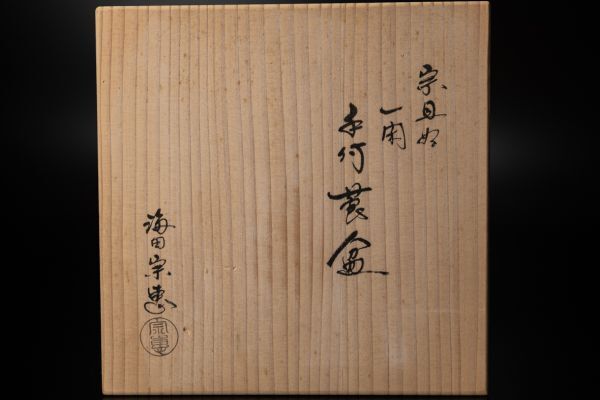 宗旦好
一閑
手付莨盆
海田宗恵